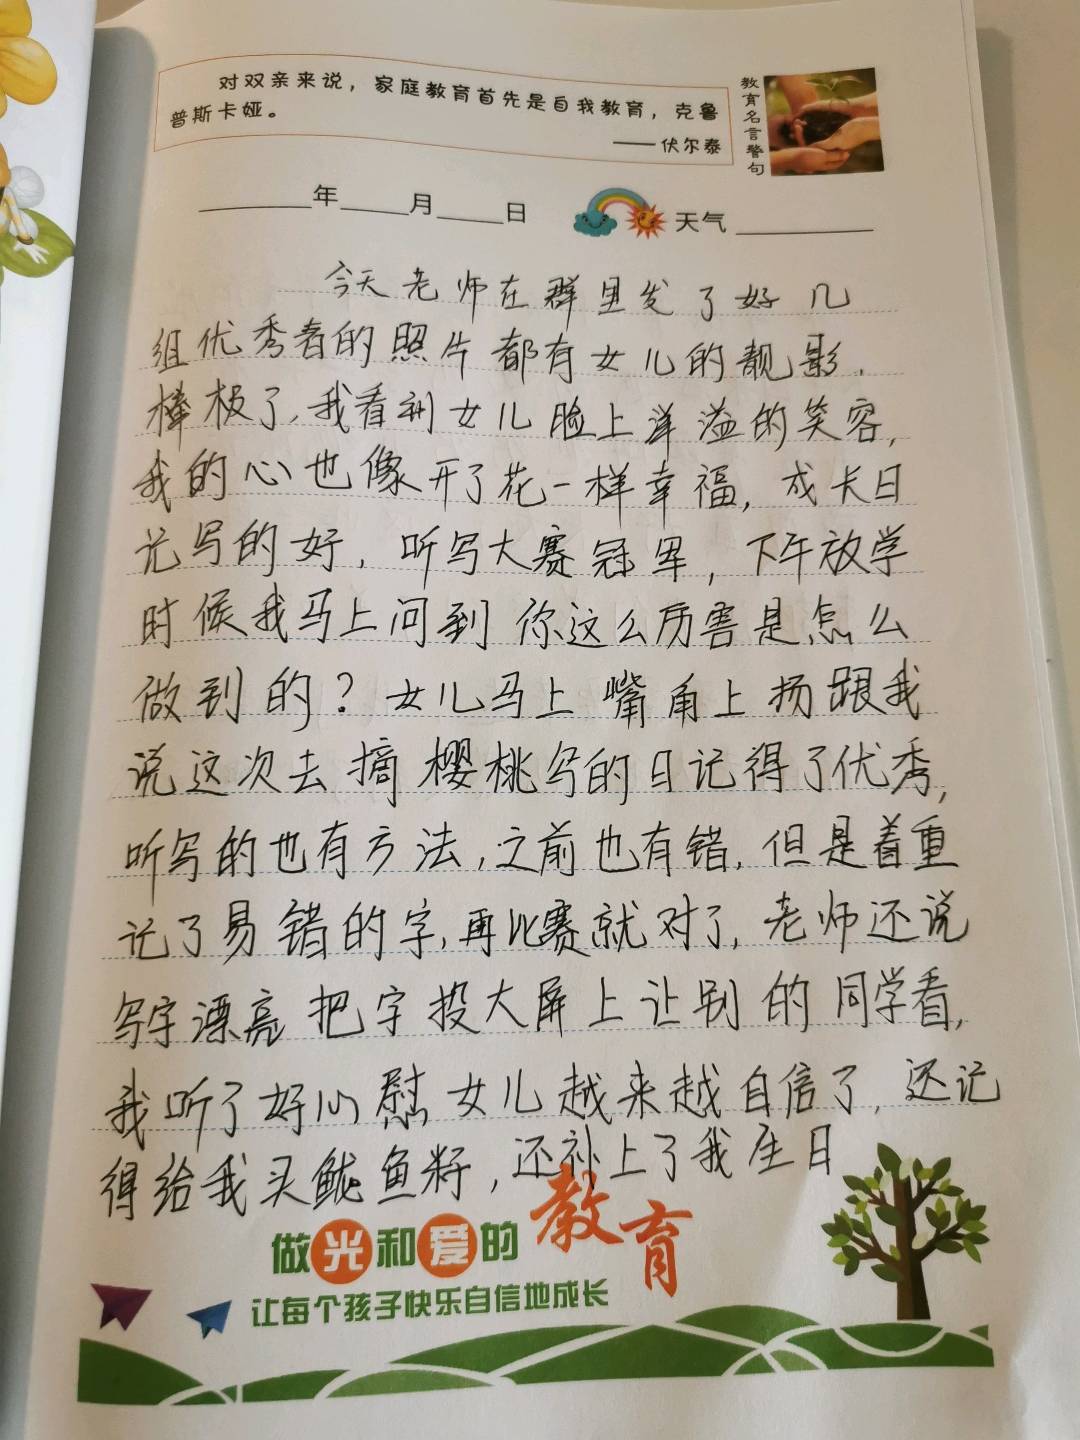 对双亲来说，家庭教育首先是自我教育，克鲁
普斯卡娅。
——伏尔泰
教育名言警句
年 月 日 天气
今天老师在群里发了好几
组优秀者的照片都有女儿的靓影.
棒极了,我看到女儿脸上洋溢的笑容,
我的心也像开了花一样幸福,成长日
记写的好,听写大赛冠军,下午放学
时候我马上问到你这么厉害是怎么
做到的?女儿马上嘴角上扬跟我
说这次去摘樱桃写的日记得了优秀,
听写的也有方法,之前也有错,但是着重
记了易错的字,再比赛就对了,老师还说
写字漂亮把字投大屏上让别的同学看,
我听了好心慰女儿越来越自信了,还记
得给我买鱿鱼籽,还补上了我生日
做光和爱的教育
让每个孩子快乐自信地成长